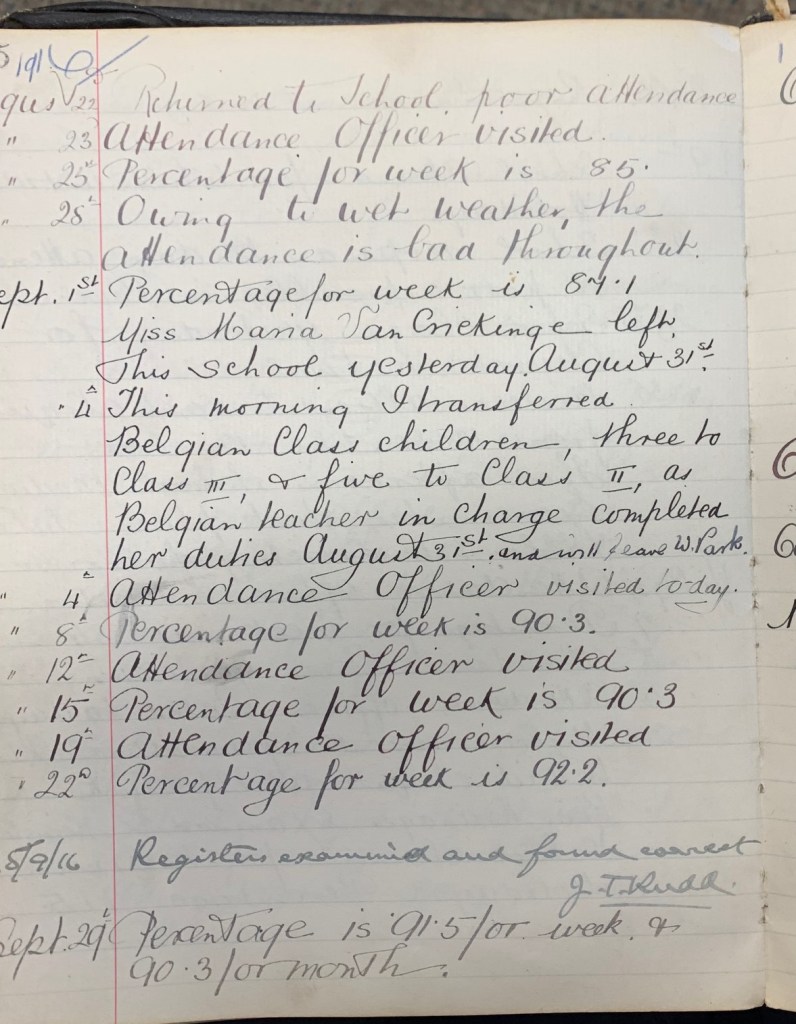 191
22 Returned to School. poor attendance
" 23 Attendance Officer visited.
" 25th Percentage for week is 85.
" 28th Owing to wet weather, the
attendance is bad throughout.
ept. 1st Percentage for week is 87.1
Miss Maria Van Crickinge left
This school yesterday. August 31st.
" 4th This morning I transferred
Belgian Class children, three to
Class III, & five to Class II, as
Belgian teacher in charge completed
her duties August 31st. and will leave W. Park.
" 4th Attendance Officer visited to-day.
" 8th Percentage for week is 90.3.
" 12th Attendance Officer visited
" 15th Percentage for week is 90.3
" 19th Attendance Officer visited
" 22nd Percentage for week is 92.2.
5/9/16 Registers examined and found correct
J. T. Rudd.
Sept. 29th Percentage is 91.5 for week. &
90.3 for month.